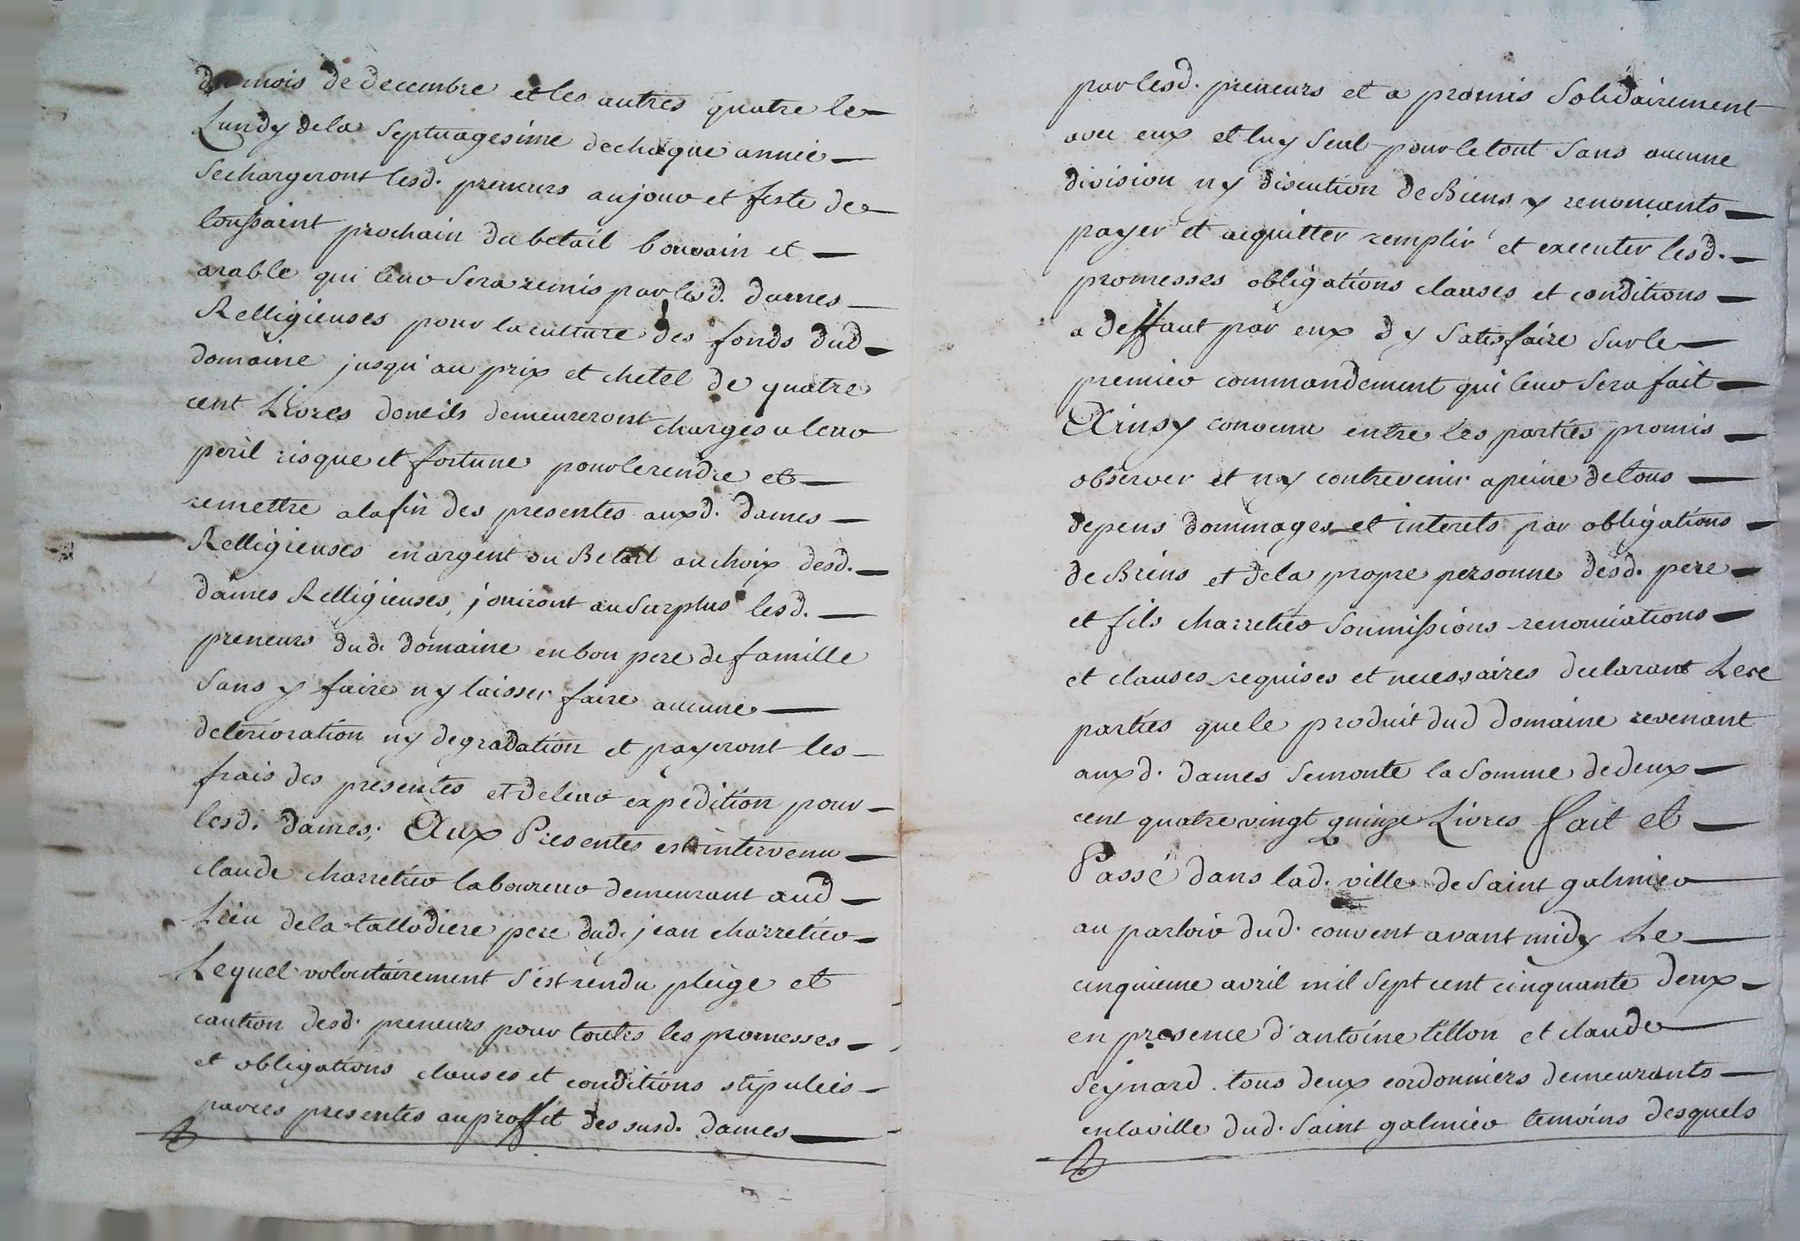 du mois de decembre et les autres quatre le
Lundy dela Septuagesime dechaque année
Sechargeront lesd. preneurs aujour et feste de
toussaint prochain du betail bouvain et
arable qui leur Sera remis par lesd. dames
Relligieuses pour la culture des fonds dud
domaine jusqu'au prix et chetel de quatre
cent Livres dont ils demeureront charges a leur
peril risque et fortune pour le rendre et
remettre a la fin des presentes auxd. dames
Relligieuses en argent ou Betail au choix desd.
dames Relligieuses, jouiront au Surplus lesd.
preneurs dud. domaine en bon pere de famille
Sans y faire ny laisser faire aucune
deterioration ny degradation et payeront les
frais des presentes et de leur expedition pour
lesd. dames; Aux Presentes est intervenu
claude charretier laboureur demeurant aud
Lieu dela tallodiere pere dud. jean charretier
Lequel volontairement s'est rendu pleige et
caution desd. preneurs pour toutes les promesses
et obligations clauses et conditions stipulées
par ces presentes au proffit des susd. dames
par lesd. preneurs et a promis Solidairement
avec eux et luy Seul pour le tout Sans aucune
division ny discution de Biens y renonçants
payer et acquitter remplir et executer lesd.
promesses obligations clauses et conditions
a deffaut par eux d'y Satisfaire Sur le
premier commandement qui leur Sera fait
Ainsy convenu entre les parties promis
observer et ny contrevenir a peine de tous
depens dommages et interets par obligations
de Biens et dela propre personne desd. pere
et fils charretier Soumissions renonciations
et clauses requises et necessaires declarant Lese
parties que le produit dud domaine revenant
auxd. dames Semonte la Somme de deux
cent quatre vingt quinze Livres fait et
Passé dans lad. ville de Saint galmier
au parloir dud. couvent avant midy Le
cinquieme avril mil Sept cent cinquante deux
en presence d'antoine tillon et claude
Seynard tous deux cordonniers demeurants
en la ville dud. Saint galmier temoins desquels